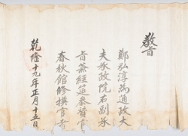 敎旨
鄭弘淳爲通政大
夫承政院右副承
旨兼經筵參贊官
春秋館修撰官者
乾隆十九年正月十五日